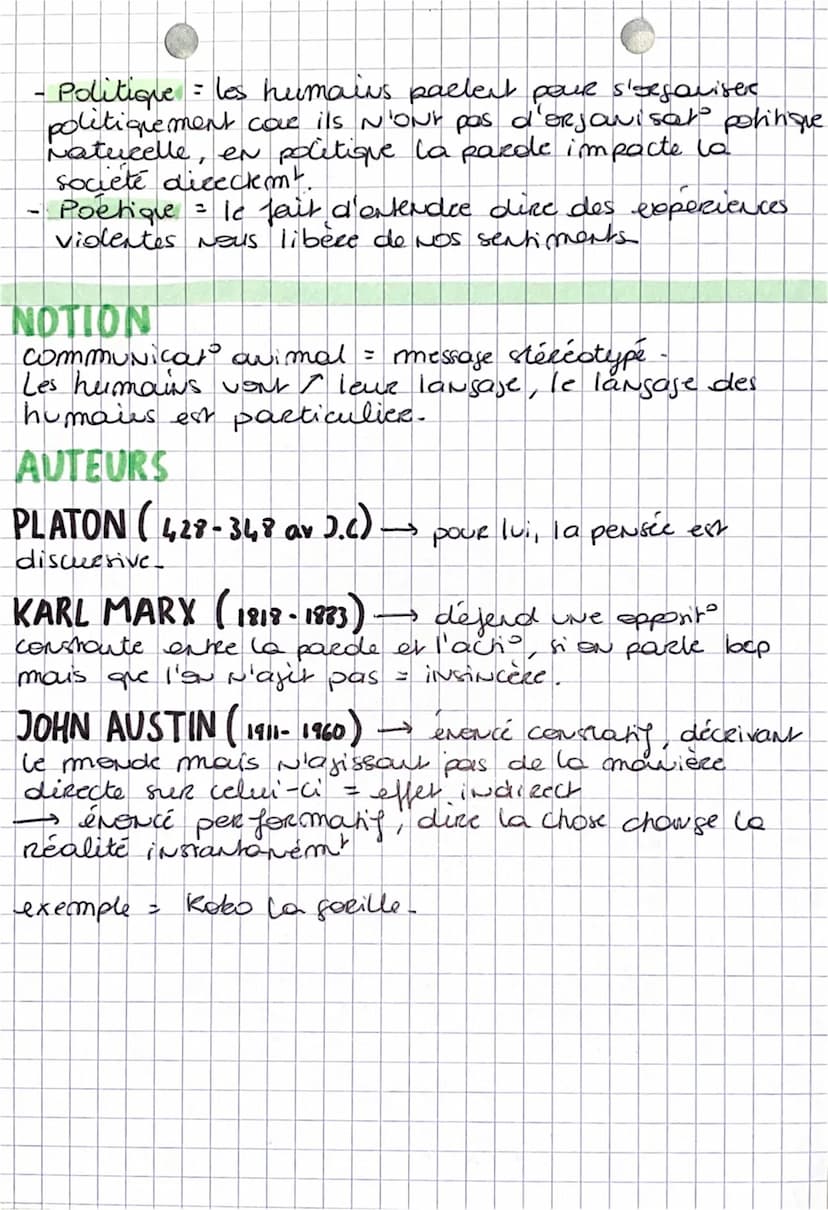 - Politique = les humains parlent pour s'organiser
politiquement car ils n'ont pas d'organisat° politique
naturelle, en politique la parole impacte la
société direckemt.
- Poétique = le fait d'entendre dire des expériences
violentes nous libère de nos sentiments
NOTION
communicat° animal = message stéréotypé.
Les humains vont ↗ leur langage, le langage des
humains est particulier.
AUTEURS
PLATON (428-348 av J.C) → pour lui, la pensée est
discursive.
KARL MARX (1818-1883) → défend une opposit°
constante entre la parole et l'acti°, si on parle bcp
mais que l'on n'agit pas = insincère.
JOHN AUSTIN (1911-1960) → énoncé constatif, décrivant
le monde mais n'agissant pas de la manière
directe sur celui-ci = effet indirect
→ énoncé performatif, dire la chose change la
réalité instantanémt
exemple = Koko la gorille.